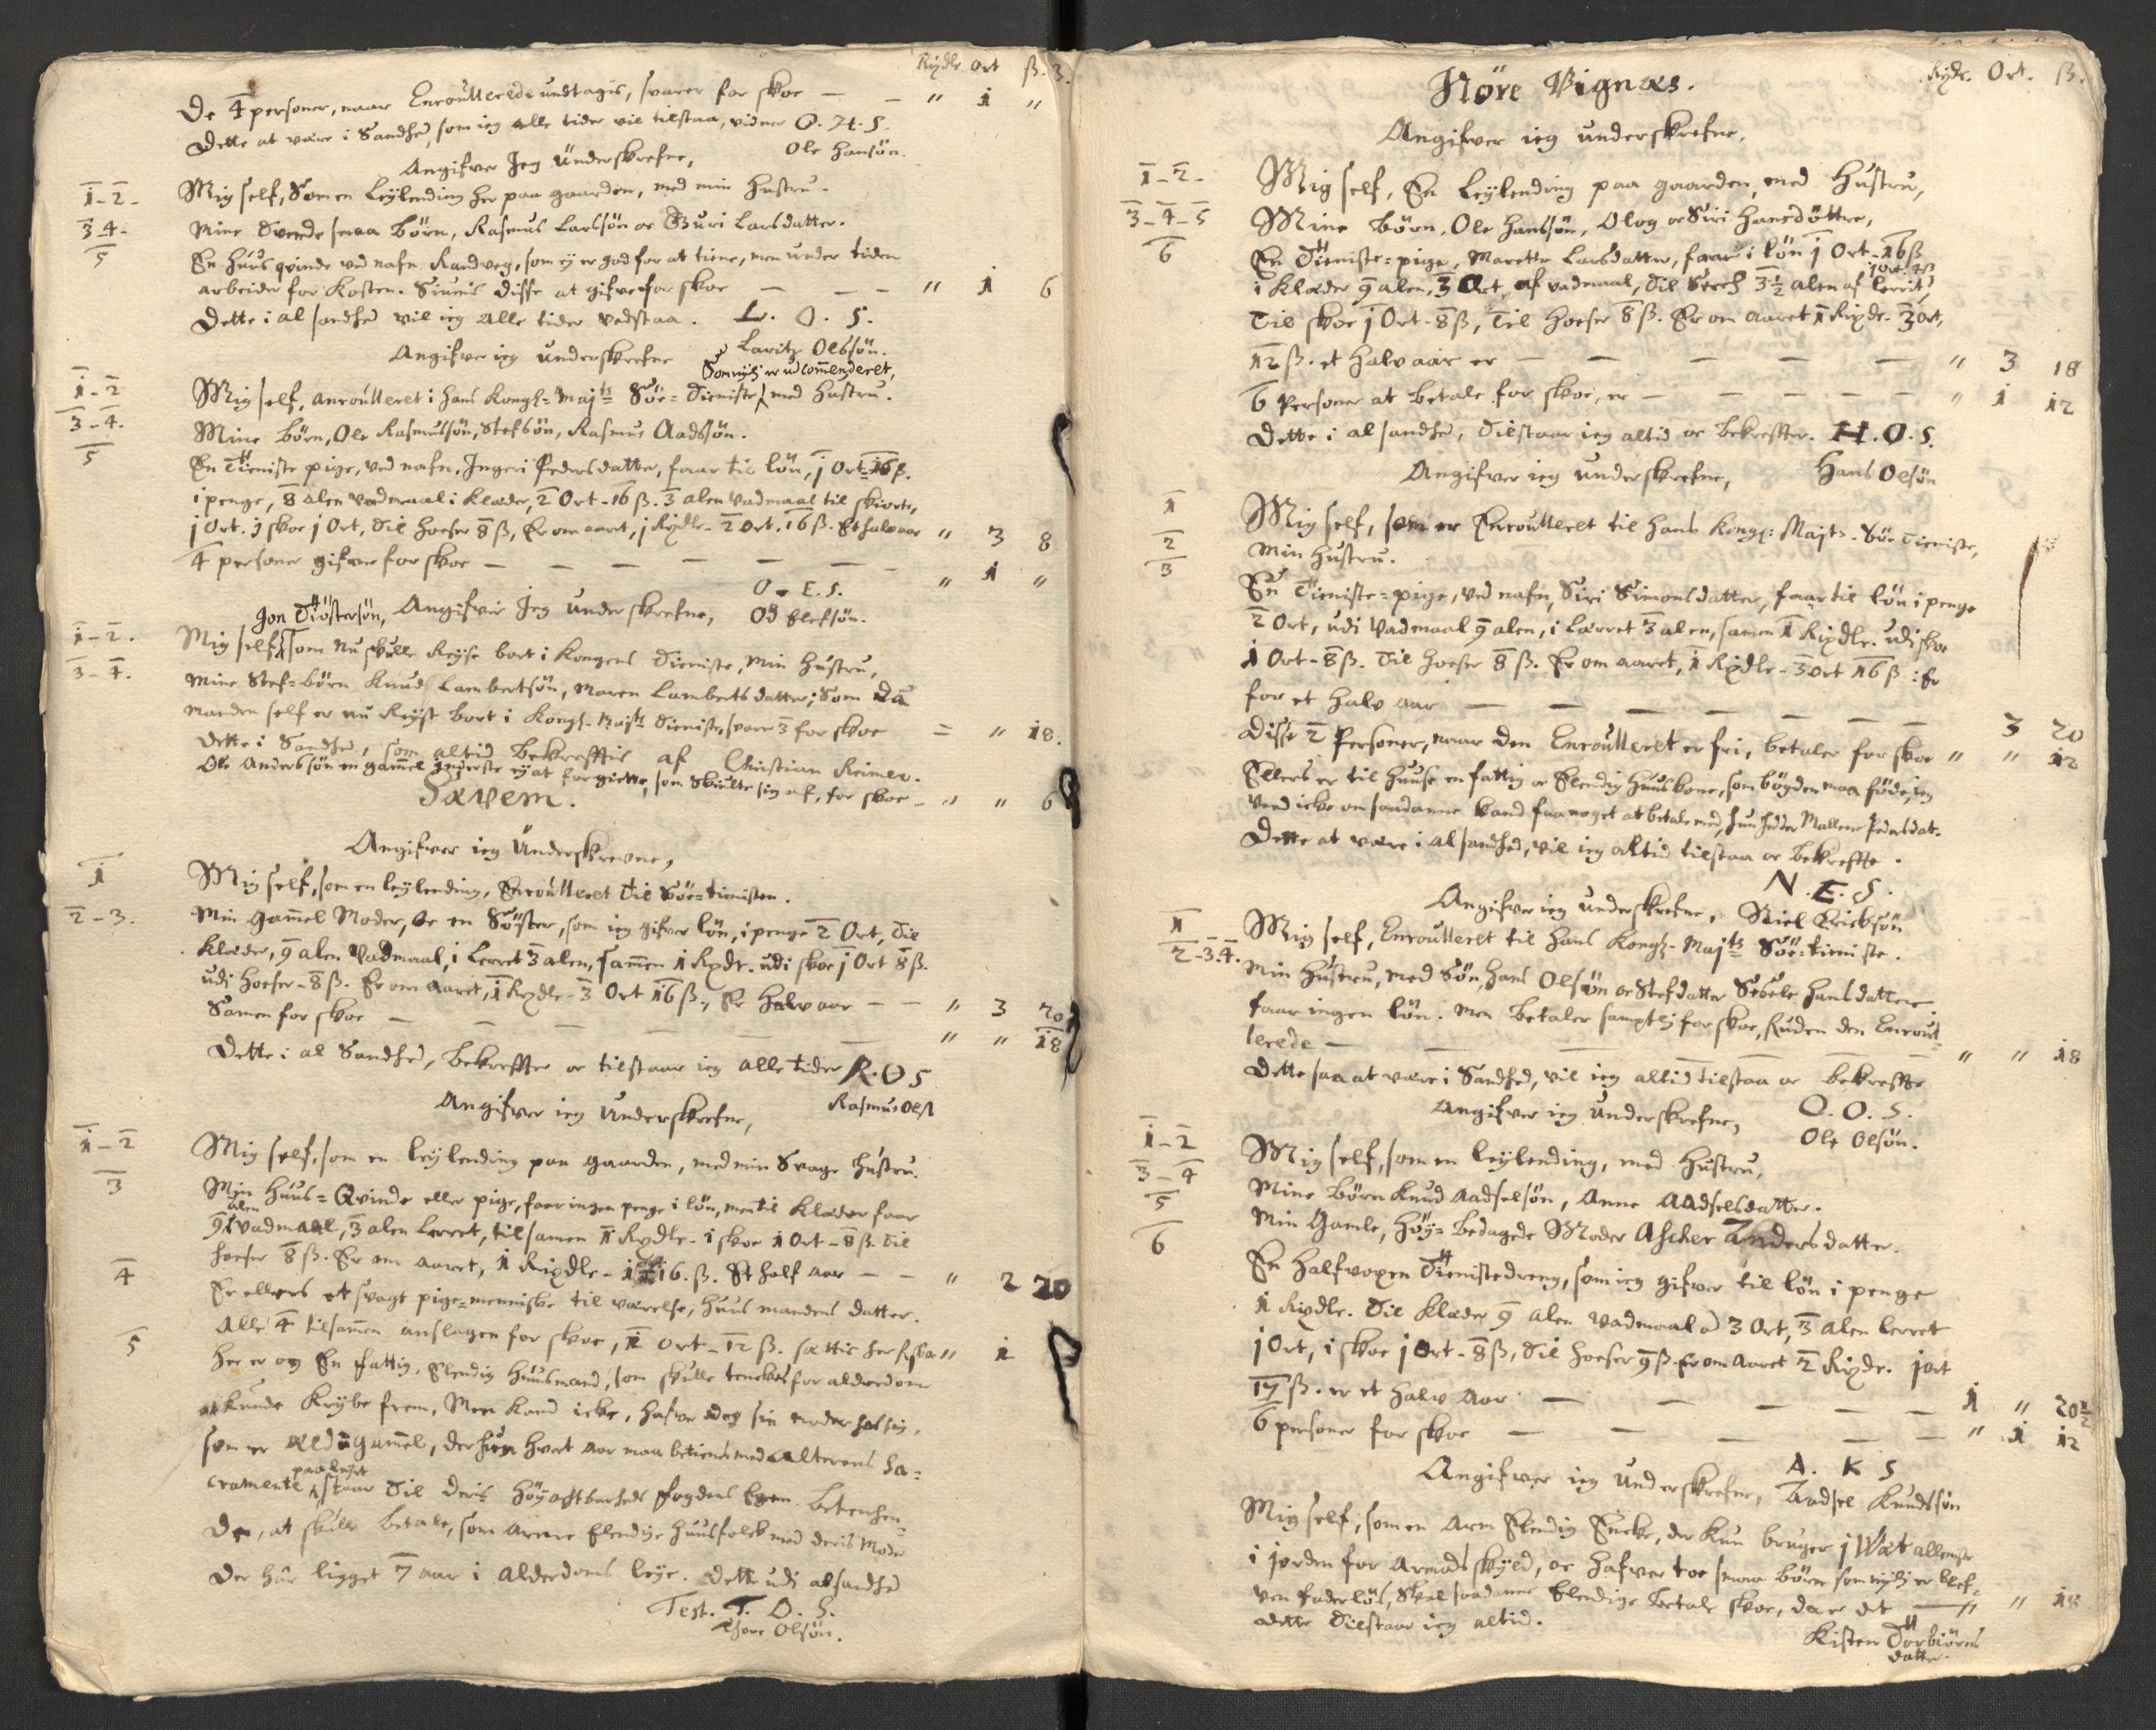 Rixdlr Ort ß. 3.
De 4 personer, naar Enroullerede undtagis, svarer for skoe — — " 1 "
Dette at være i Sandhed, som ieg alle tider vil tilstaa, vidner O. H. S.
Ole Hansön.
Angifver Jeg Underskrefne,
1-2- Mig self, Som en Leylending her paa gaarden, med min Hustru.
3-4- Mine Tvende smaa Börn, Rasmus Larssön oc Guri Larsdatter.
5 En huus qvinde ved nafn Randveg, som ey er god for at tiene, men under tiden
arbeider for Kosten. Siunis disse at gifve for skoe — — — " 1 6
Dette i al sandhed vil ieg alle tider vedstaa. L. O. S.
Laritz Olssön.
Angifver ieg underskrefne
Som nylig er ud commenderet,
1-2 Mig self, anroulleret i hans Kongl- Majts Söe-Tieniste, med Hustru.
3-4. Mine Börn, Ole Rasmussön, Stefsön, Rasmus Aadssön.
5 En Tieniste pige, ved nafn, Ingeri Pedersdatter, faar til lön, 1 Ort 16 ß.
i penge, 8 alen Vadmaal i Klæder, 2 Ort-16 ß. 3 alen Vadmaal til skiorte,
1 Ort. I skoe 1 Ort, Til hoeser 8 ß, Er om aaret, 1 Rixdlr- 2 Ort. 16 ß. Et halv aar " 3 8
4 personer gifver for skoe — — — — — — " 1 "
O. E. S.
Jon Tiöstersön, Angifver Jeg Underskrefne, Od Elefsön.
1-2. Mig self, Som Nu skulle Reyse bort i Kongens Tieniste, Min Hustru,
3-4. Mine Stef-börn Knud Lambertsön, Maren Lambertsdatter; Som da
Manden self er nu Reyst bort i Kongl- Majts Tieniste, svare 3 for skoe = " 18.
Dette i Sandhed, som altid Bekrefftis af Christian Reimer.
Ole Anderssön en gammel inderste ey at forgiette, som skiulte sig af, for skoe - " " 6
Sævem.
Angifver ieg Underskrevne,
1 Mig self, som en leylending, Enroulleret til Söe-tienisten.
2-3. Min Gammel Moder, oc en Söster, som ieg gifver lön, i penge 2 Ort, Til
Klæder, 9 alen Vadmaal, i Lerret 3 alen, sammen 1 Rixdr. udi skoe 1 Ort 8 ß.
udi hoeser-8 ß. Er om Aaret, 1 Rixdlr- 3 Ort 16 ß., Er Halv aar — — " 3 20
Samen for skoe — — — — — — " " 18
Dette i al Sandhed, Bekreffter oc tilstaar ieg alle tider R. O S
Rasmus Ols
Angifver ieg Underskrefne,
1-2 Mig self, som en leylending paa gaarden, med min Svage Hustru.
3 Min Huus=Qvinde eller pige, faar ingen penge i lön, men til Klæder faar
alen
9 Vadmaal, 3 alen Lerret, tilsamen 1 Rixdlr- i skoe 1 Ort-8 ß. Til
hoeser 8 ß. Er om Aaret, 1 Rixdlr- 1 Ort 16. ß. Et half aar — — " 2 20
4 Er ellers et svagt pige-menniske til værelse, huus mandens datter.
Alle 4 tilsamen anslagen for skoe, 1 Ort-12 ß. settis her " 1
5 Her er og En fattig, Elendig Huusmand, som skulle tenckes for alderdom
at kunde Krybe frem, Men Kand icke, hafver dog sin moder hos sig,
som er Ældgammel, der hun hvert aar maa betienes med Alterens Sa=
paa leyet
cramente, staar Til deris Höyachtbarheds Fogdens Egen betenchen=
de, at skulle betale, som arme Elendige huusfolck med deris Moder
der har ligget 7 aar i Alderdoms leye. Dette udi al sandhed
Test. T. O. S.
Thore Olsön.
Rixdr. Ort. ß.
Nöre Vignæs.
Angifver ieg underskrefne,
1-2- Mig self, En Leylending paa gaarden, med Hustru,
3-4-5 Mine Börn, Ole Hanssön, Olog oc Siri Hansdöttre,
6 En Tieniste=pige, Marette Larsdatter, faar i lön 1 Ort-16 ß
1 Ort. 4ß
i Klæder 9 alen, 3 Ort, af vadmaal, til Serch 3½ alen af lerrit
Til skoe 1 Ort-8 ß, Til hoeser 8 ß. Er om aaret 1 Rixdr. 3 ort,
12 ß. et halv aar er — — — — — " 3 18
6 Personer at betale for skoe, er — — — — — " 1 12
Dette i al sandhed, Tilstaar ieg altid oc bekreffter. H. O. S.
Hans Olsön
Angifver ieg underskrefne,
1 Mig self, som er Enroulleret til hans Kongl: Majts. Söe Tieniste,
2 Min Hustru.
3 En Tieniste=pige, ved nafn, Siri Simonsdatter, faar til lön i penge
2 Ort, udi Vadmaal 9 alen, i Lærret 3 alen, samen 1 Rixdlr. udi skoe
1 Ort-8 ß. Til hoeser 8 ß. Er om aaret, 1 Rixdlr-3 Ort 16 ß: Er
for et halv aar — — — — — — 3 20
Disse 2 Personer, naar den Enroulleret er fri, betaler for skoe " " 12
Ellers er til huuse en fattig oc Elendig huuskone, som bögden maa föde, ieg
Veed icke om saadanne kand faa noget at betale med, hun heder Mallene Pedersdat.
Dette at være i al sandhed, vil ieg altid tilstaa oc bekreffte.
N. E. S.
Niels Erichsön
Angifver ieg underskrefne,
1 Mig self, Enroulleret til hans Kongl- Majts Söe-tieniste.
2-3-4. Min Hustru, med Sön Hans Olssön oc Stefdatter Sebele Hansdatter
faar ingen lön. Men betaler samptlig for skoe, Uden den Enroul=
lerede — — — — — — " " 18
Dette saa at være i Sandhed, vil ieg altid tilstaa oc bekreffte
O. O. S.
Ole Olsön.
Angifver ieg Underskrefne,
1-2 Mig self, som en leylending, med Hustru,
3-4 Mine Börn Knud Aadselsön, Anne Aadselsdatter.
5 Min Gamle, höy=Bedagede Moder Ascher Andersdatter.
6 En halfvoxen Tienistedreng, som ieg gifver til lön i penge
1 Rixdlr. Til Klæder 9 alen Vadmaal ad 3 Ort, 3 alen lerret
1 Ort, i skoe 1 Ort-8 ß, Til hoeser 9 ß. Er om Aaret 2 Rixdr. 1 ort
17 ß. er et halv Aar — — — — — 1 " 20½
6 personer for skoe — — — — — " 1 12
A. K S
Angifver ieg Underskrefne, Aadsel Knudssön
Mig self, som en Arm Elendig Encke, der kun bruger 1 Wæt alleniste
i jorden for Armods skyld, oc hafver toe smaa börn som nylig er blef=
ven faderlös, skal saadanne Elendige betale skoe, da er det — " " 18
dette Tilstaar ieg altid.
Kisten Torbiörns
datter.